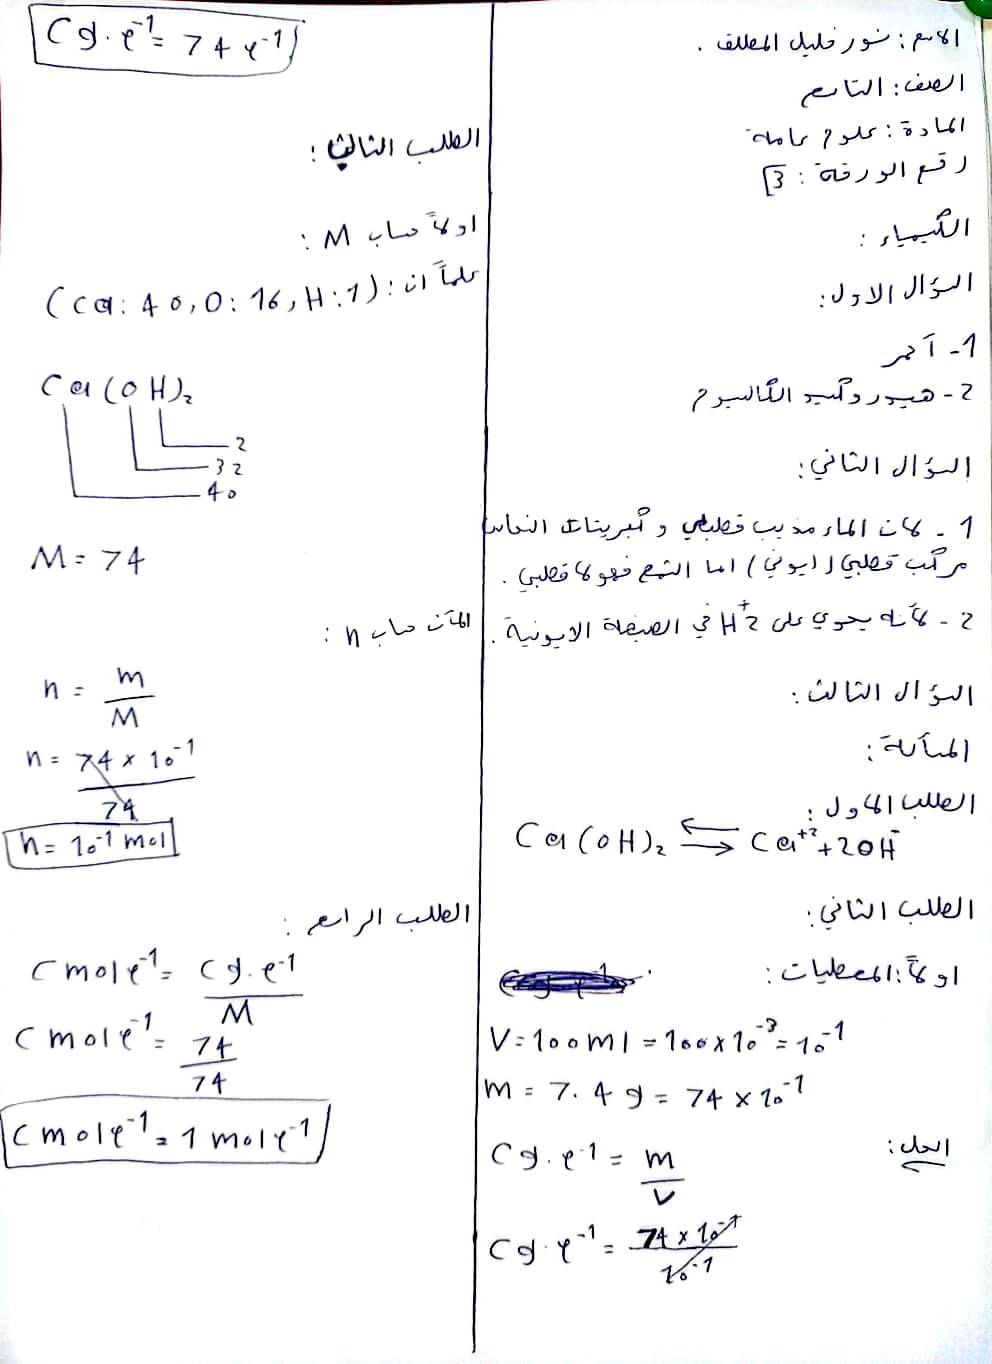 الاسم : نور خليل المطلق .
الصف : التاسع
المادة : علوم عامة
رقم الورقة : 3
الكيمياء :
السؤال الاول :
1- أحمر
2- هيدروكسيد الكالسيوم
السؤال الثاني :
1 - لان الماء مذيب قطبي و كبريتات النحاس
مركب قطبي (ايوني) اما الشمع فهو لا قطبي .
2 - لأنه يحوي على H+2 في الصيغة الايونية .
السؤال الثالث :
المسألة :
الطلب الاول :
Ca(OH)₂ ⇌ Ca⁺²+2OH⁻
الطلب الثاني :
اولاً : المعطيات :
V=100ml=100x10⁻³=10⁻¹
m = 7.4g = 74 x 10⁻¹
الحل :
Cg.ℓ⁻¹ = m/V
Cg.ℓ⁻¹ = 74 x 10⁻¹/10⁻¹
Cg.ℓ⁻¹ = 74ℓ⁻¹
الطلب الثالث :
اولاً حساب M :
علماً ان : (Ca: 40, O: 16, H: 1)
Ca(OH)₂
2
32
40
M = 74
الآن حساب n :
n = m/M
n = 74 x 10⁻¹/74
n = 10⁻¹ mol
الطلب الرابع :
C molℓ⁻¹ = Cg.ℓ⁻¹/M
C molℓ⁻¹ = 74/74
C molℓ⁻¹ = 1 molℓ⁻¹